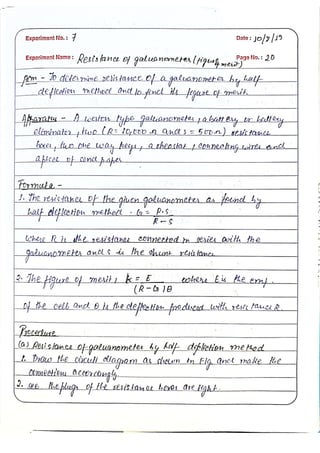 Experiment No. : 7 Date : 10/7/19
Experiment Name : Resistance of galvanometer (figure of merit) Page No. : 20
Aim - To determine resistance of a galvanometer by half
deflection method and to find its figure of merit.
Apparatus - A weston type galvanometer, a battery or battery
eliminator, two (R = 10,000 Ω and s = 500 Ω) resistance
boxes, two one way keys, a rheostat, connecting wires and
a piece of sand paper
Formula -
1. The resistance of the given galvanometer as found by
half deflection method - G = R.S
R-S
where R is the resistance connected in series with the
galvanometer and s is the shunt resistance
2. The figure of merit, k = E where E is the emf
(R-G)θ
of the cell and θ is the deflection produced with resistance R.
Procedure
(a) Resistance of galvanometer by half deflection method
1. Draw the circuit diagram as shown in Fig and make the
connections accordingly
2. see the plugs of the resistance boxes are tight.